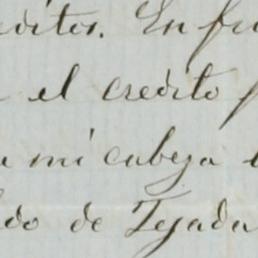 editos. En fu
el credito
mi cabeza
do de Tejada